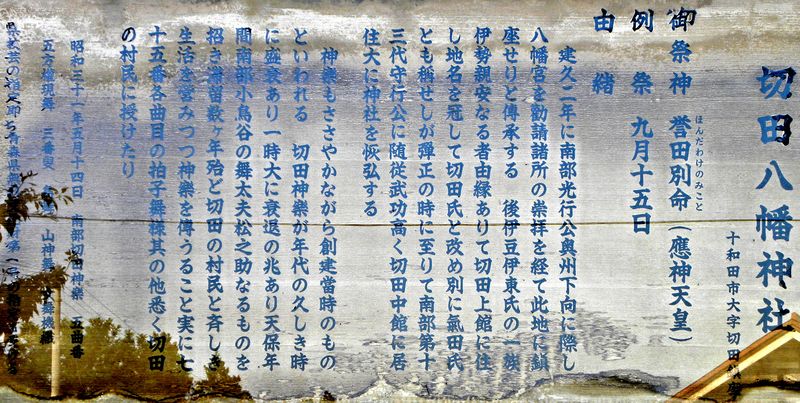 切田八幡神社
十和田市大字切田
御祭神 誉田別命(應神天皇)
ほんだわけのみこと
例祭 九月十五日
由緒
建久二年に南部光行公奥州下向に際し
八幡宮を勧請諸所の崇拝を経て此地に鎮
座せりと傳承する 後伊豆伊東氏の一族
伊勢親安なる者由縁ありて切田上館に住
し地名を冠して切田氏と改め別に氣田氏
とも稱せしが弾正の時に至りて南部第十
三代守行公に随従武功高く切田中館に居
住大に神社を恢弘する
神楽もささやかながら創建當時のもの
といわれる 切田神樂が年代の久しき時
に盛衰あり一時大に衰退の兆あり天保年
間南部小鳥谷の舞太夫松之助なるものを
招き滞留数ヶ年殆ど切田の村民と斉しき
生活を営みつつ神楽を傳うること実に七
十五番各曲目の拍子舞様其の他悉く切田
の村民に授けたり
昭和三十一年五月十四日 南部切田神楽 五曲番
五方権現舞 三番叟 山神舞